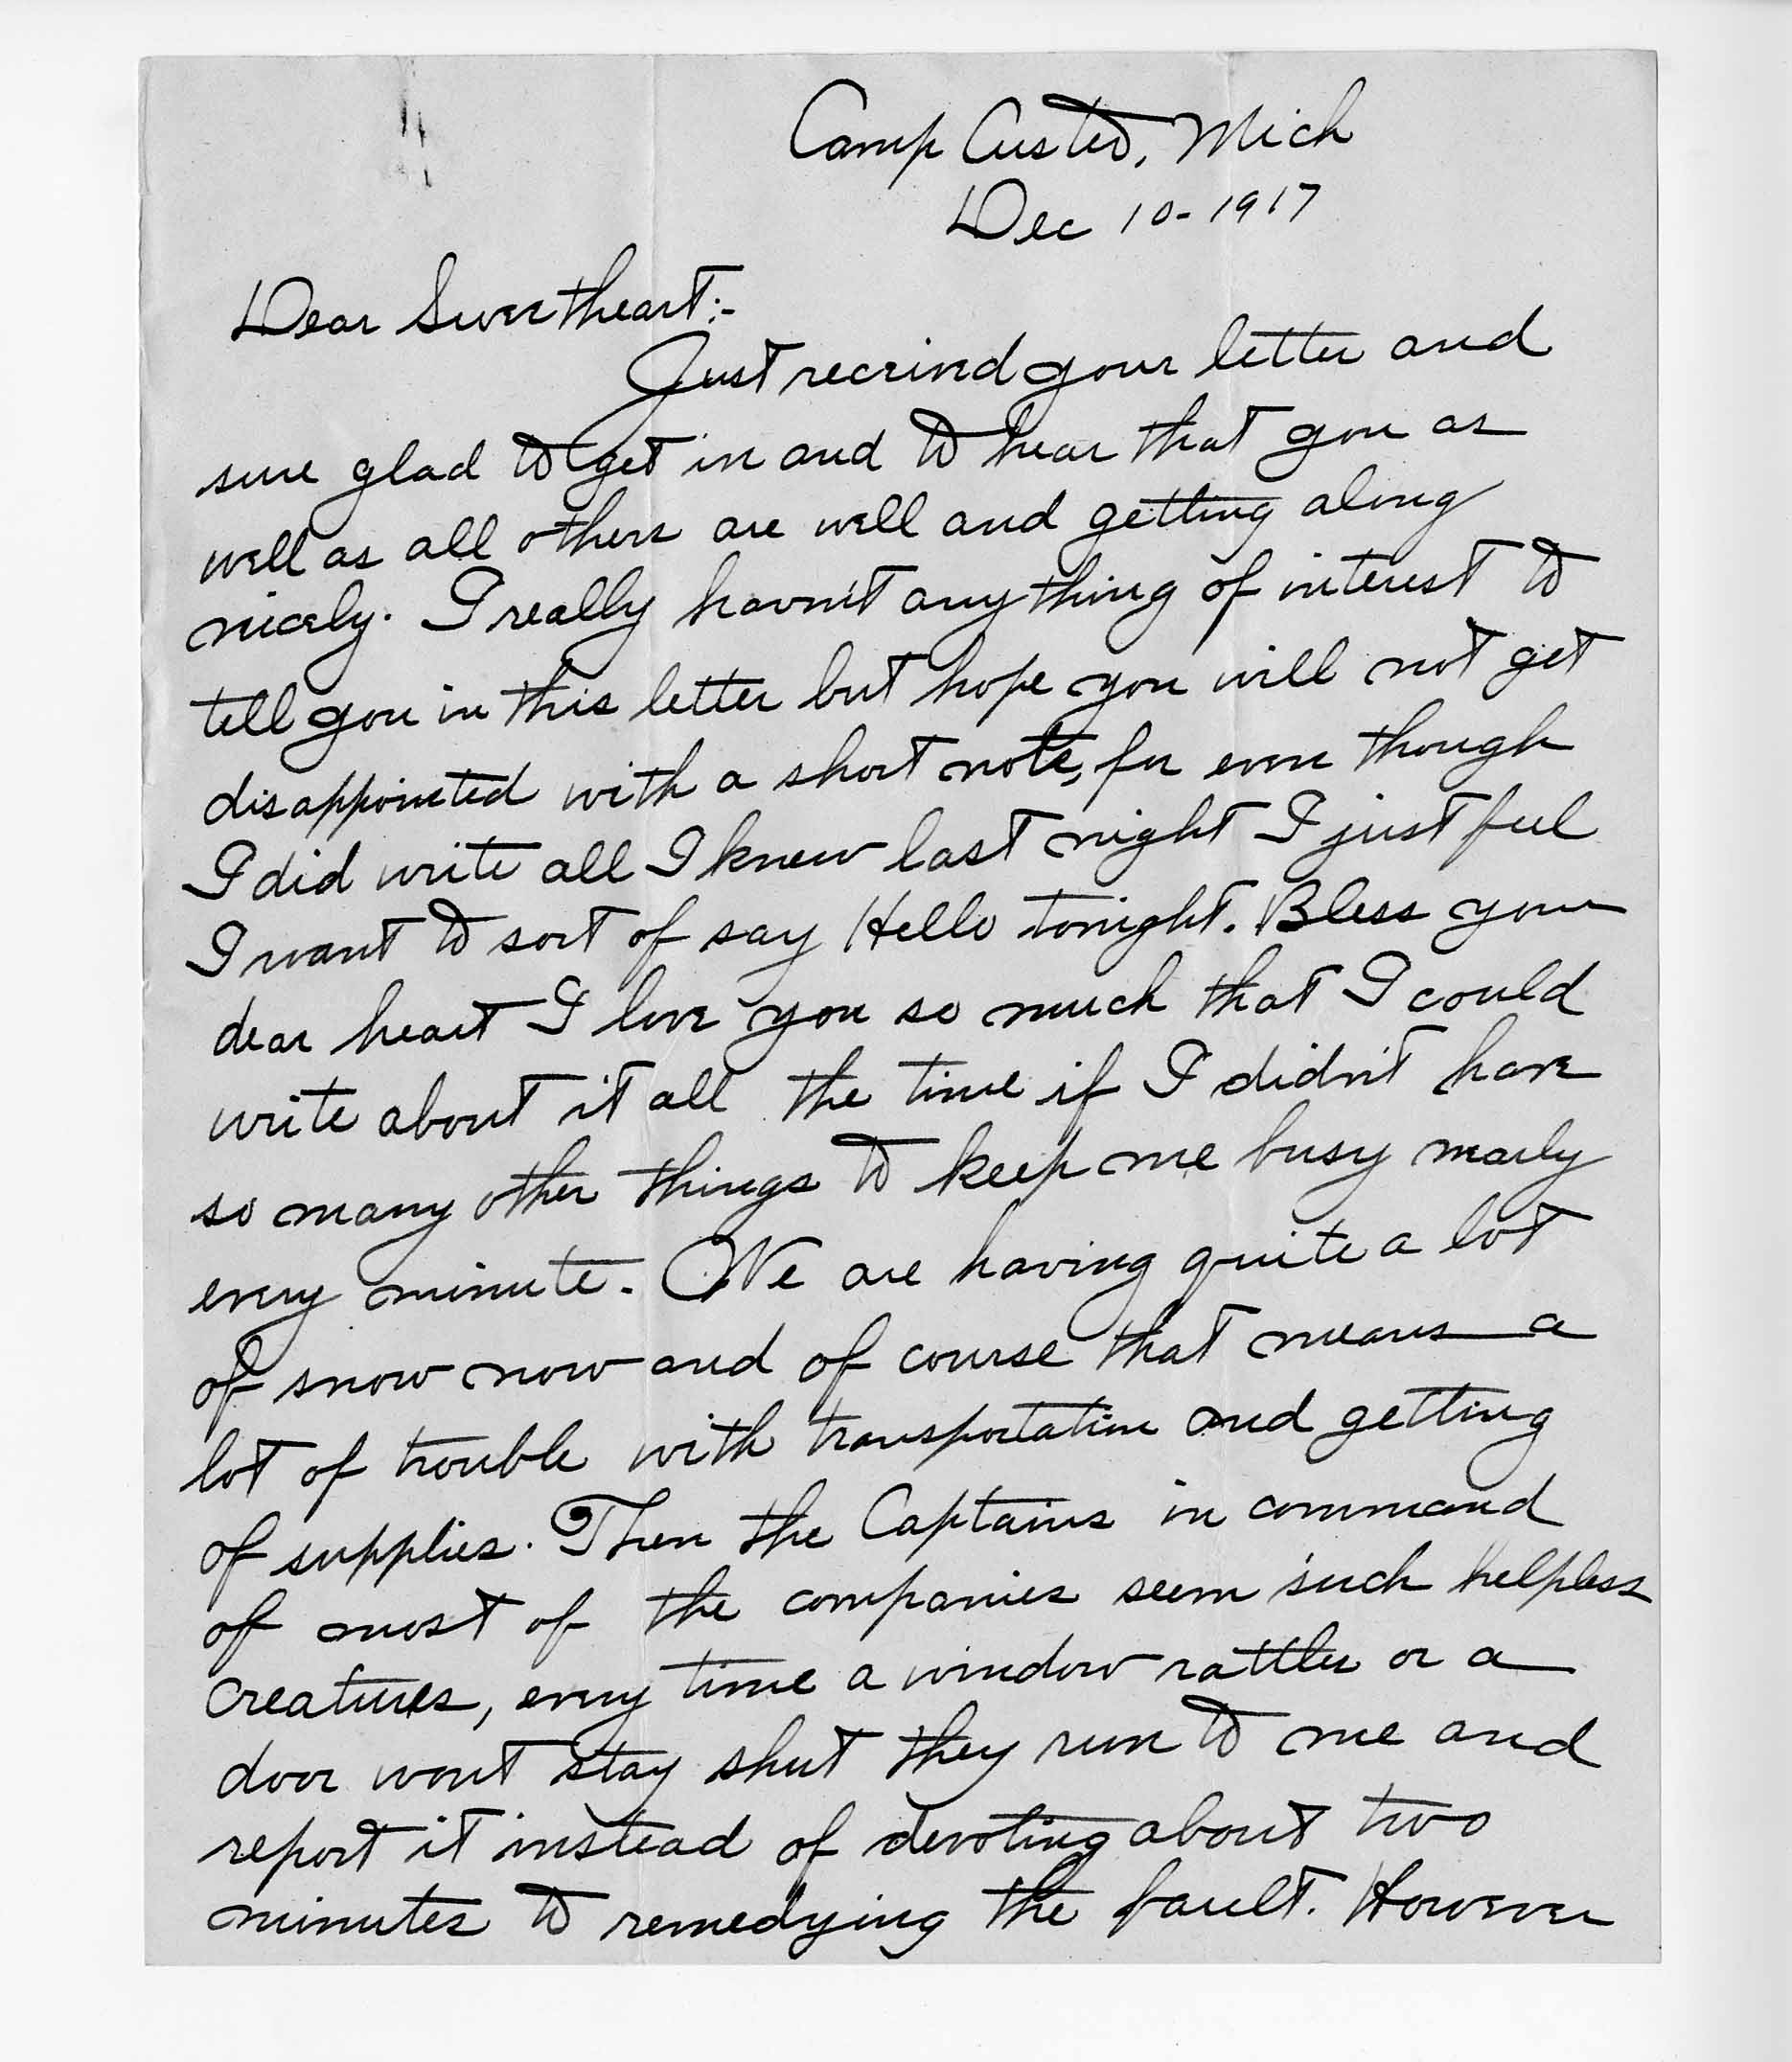 Camp Custer, Mich
Dec 10-1917
Dear Sweetheart:-
Just received your letter and
sure glad to get in and to hear that you as
well as all others are well and getting along
nicely. I really havn't anything of interest to
tell you in this letter but hope you will not get
disappointed with a short note, for even though
I did write all I knew last night I just feel
I want to sort of say Hello tonight. Bless your
dear heart I love you so much that I could
write about it all the time if I didn't have
so many other things to keep me busy nearly
every minute. We are having quite a lot
of snow now and of course that means a
lot of trouble with transportation and getting
of supplies. Then the Captains in command
of most of the companies seem such helpless
creatures, every time a window rattles or a
door wont stay shut they run to me and
report it instead of devoting about two
minutes to remedying the fault. However